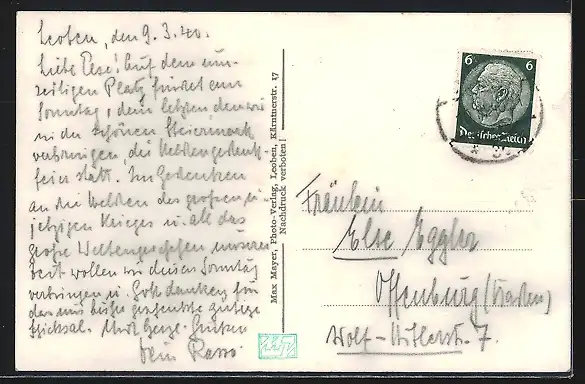 Leoben, den 9.3.40.
Liebe Else! Auf dem um-
seitigen Platz findet am
Sonntag, dem letzten den wir
in der schönen Steiermark
verbringen, die Heldengedenk-
feier statt. Im Gedenken
an die Helden des großen u.
jetzigen Krieges u. all das
große Weltengeschehen unserer
Zeit wollen wir diesen Sonntag
verbringen u. Gott danken für
das uns bisher geschenkte gütige
Schicksal. Mit Grüßen
Dein
Max Mayer, Photo-Verlag, Leoben, Kärntnerstr. 17
Nachdruck verboten!
6 6
Deutsches Reich
Fräulein
Else Eggler
Offenburg (Baden)
Wolf-Hitlerstr. 7.